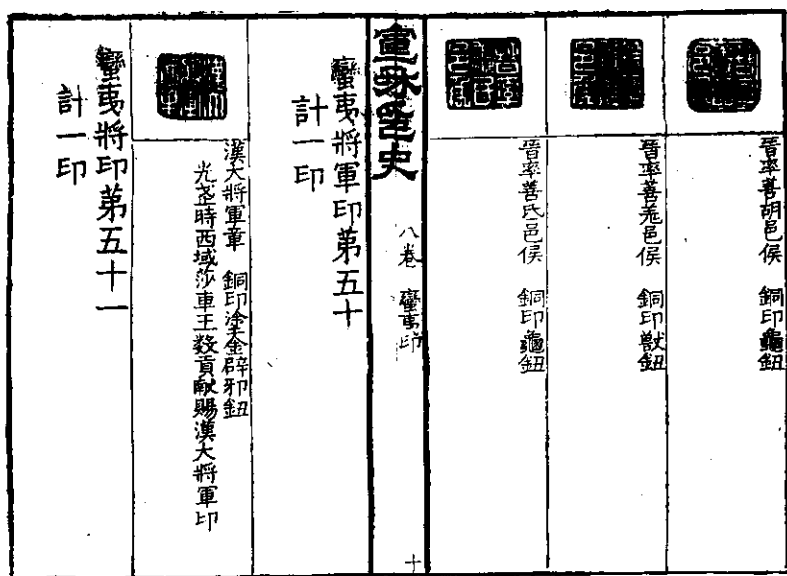 晉率善胡邑侯 銅印龜鈕
晉率善羌邑侯 銅印獸鈕
晉率善氏邑侯 銅印龜鈕
宣和印史 八卷 蠻夷印 十
蠻夷將軍印第五十
計一印
漢大將軍章 銅印塗金辟邪鈕
光武時西域莎車王數貢獻賜漢大將軍印
蠻夷將印第五十一
計一印